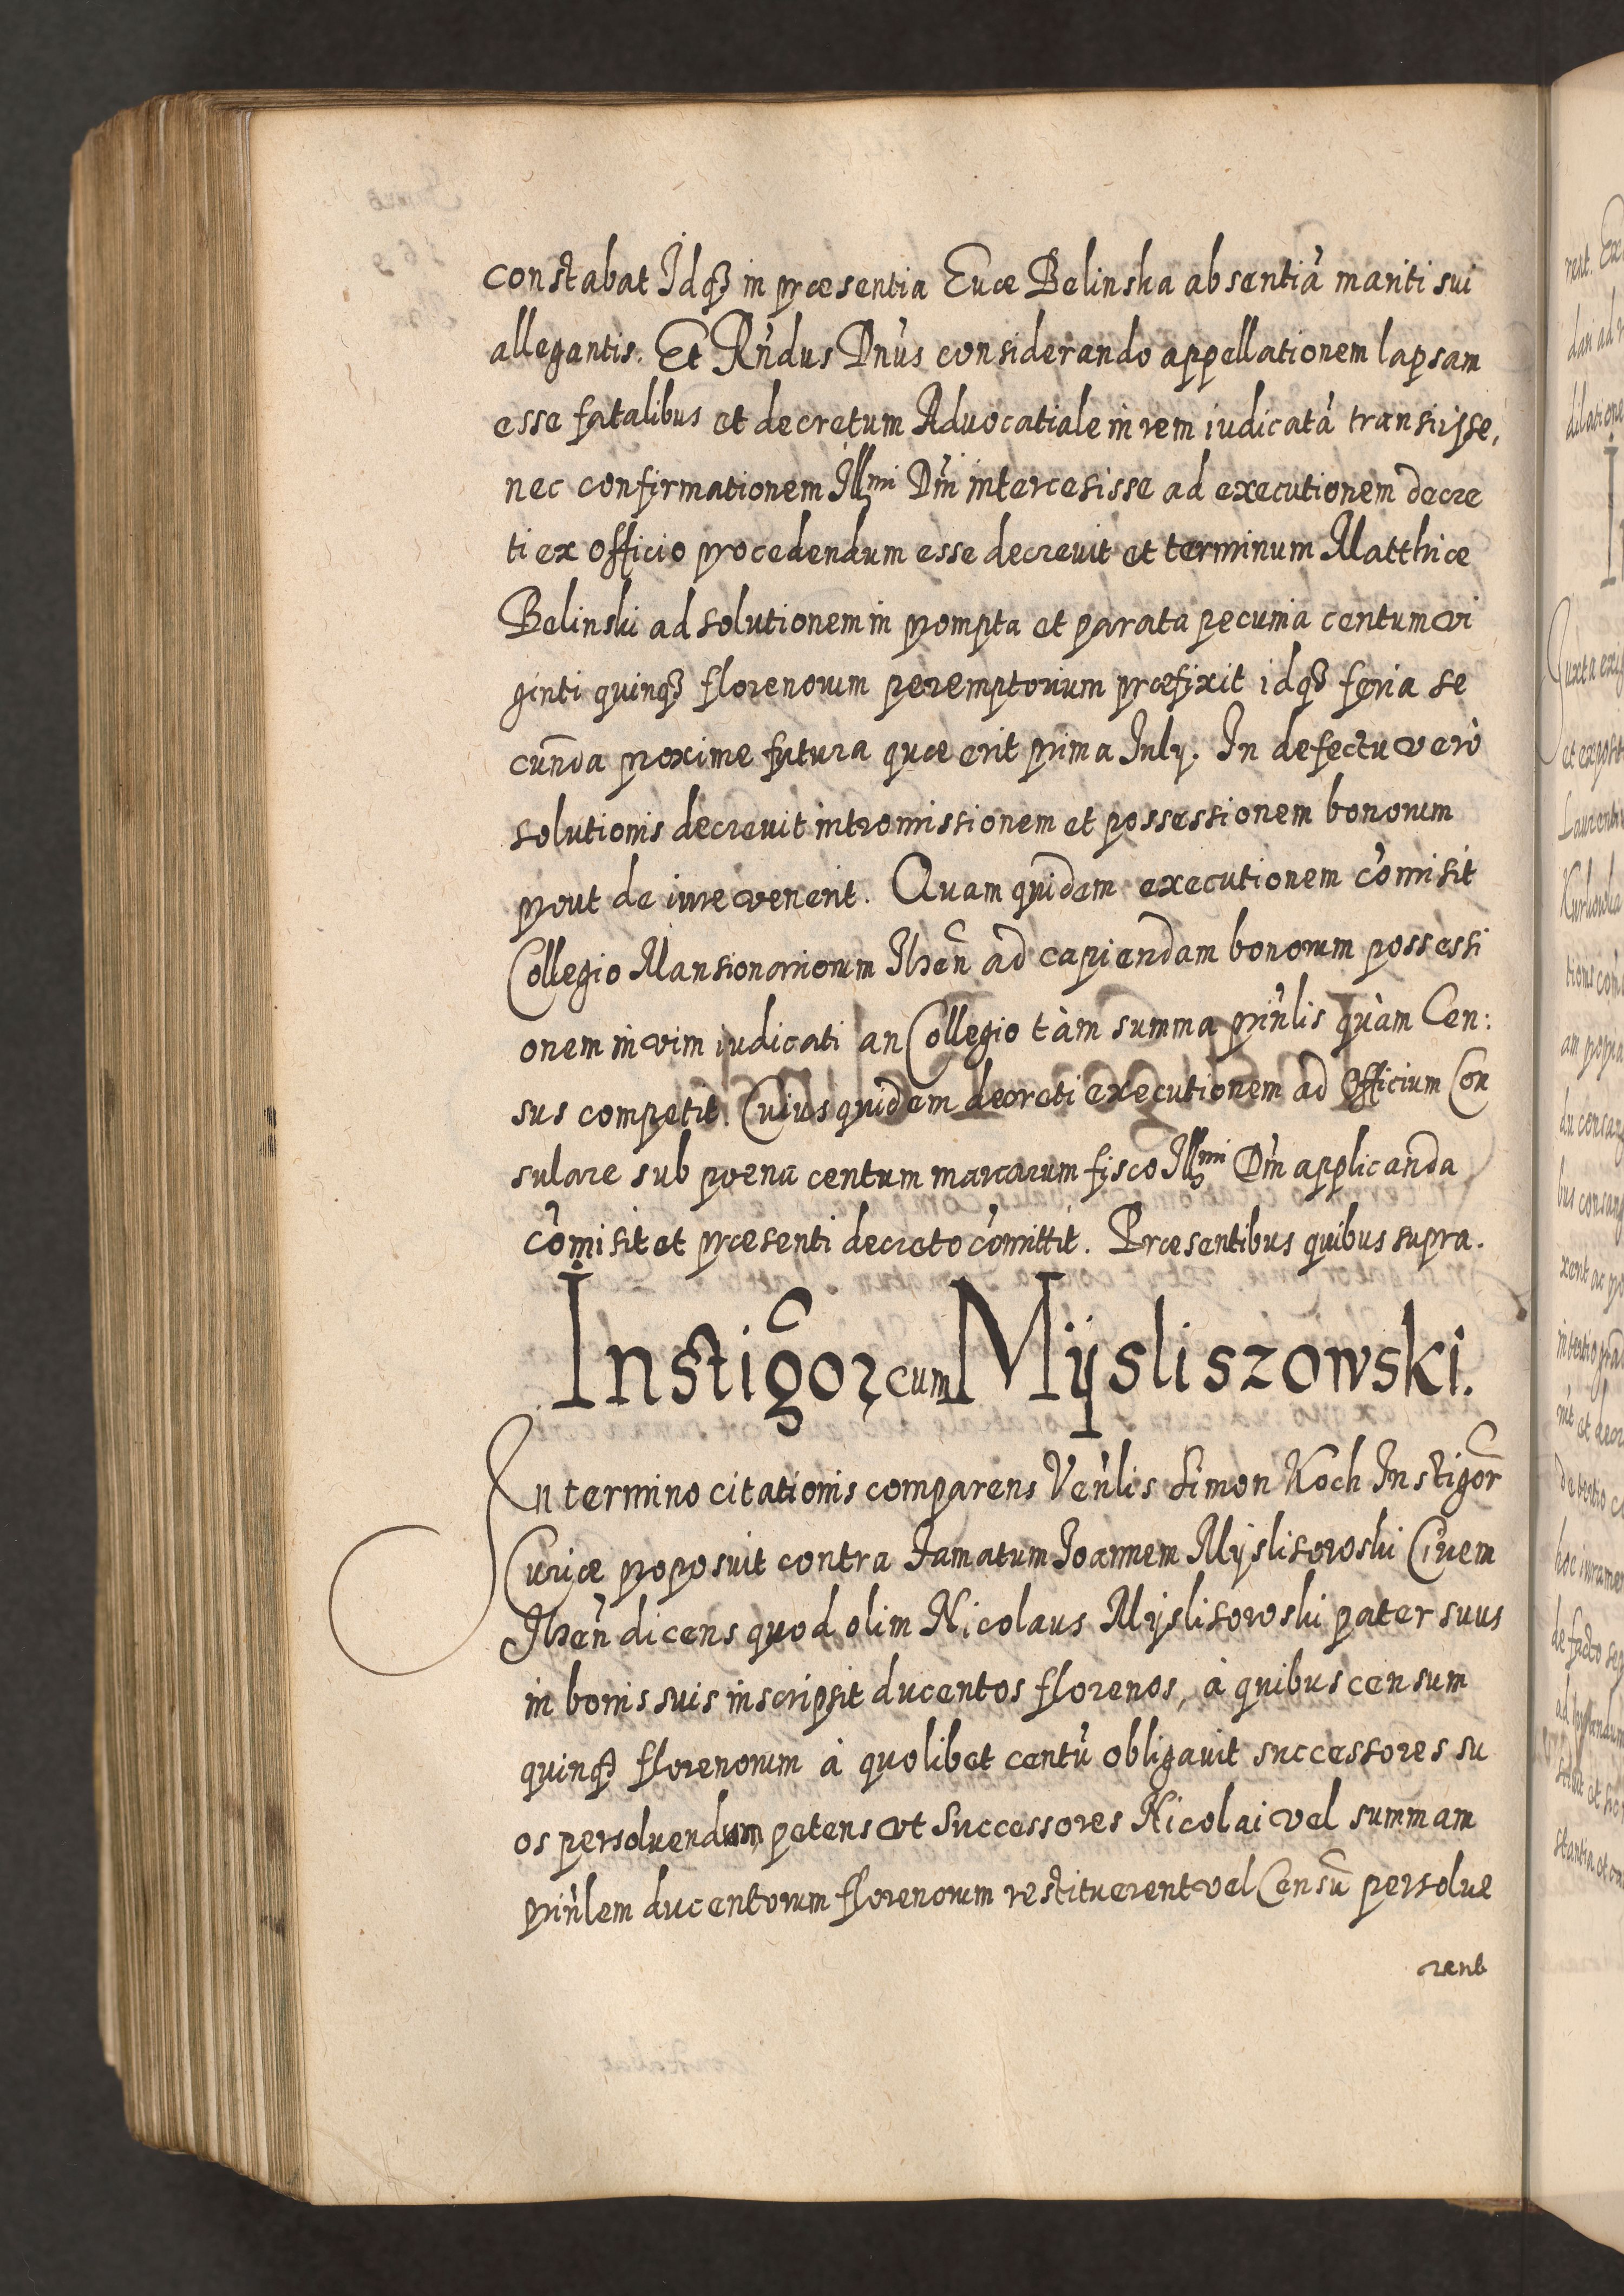 constabat Idqȝ in præsentia Euæ Belinska absentiâ mariti sui
allegantis. Et Rńdus Dńus considerando appellationem lapsam
esse fatalibus et decretum Aduocatiale in rem iudicatã transiisse,
nec confirmationem Illmi Dńi intercesisse ad executionem decre
ti ex officio procedendum esse decreuit et terminum Matthiæ
Belinski ad solutionem in prompta et parata pecunia centum vi
ginti quinqȝ florenorum peremptorium præfixit idqȝ feria se
cunda proxime futura quæ erit prima July. In defectu verò
solutionis decreuit intromissionem et possessionem bonorum
prout de iure venerit. Quam quidem executionem cõmisit
Collegio Mansionariorum Ilzeñ ad capiendam bonorum possessi
onem in vim iudicati an Collegio tàm summa prińlis quàm Cen:
sus competit. Cuius quidem decreti executionem ad Officium Con
sulare sub poena centum marcarum fisco Illmi Dńi applicanda
cõmisit et præsenti decreto cõmittit. Præsentibus quibus supra.
Instigõr cum Mÿsliszowski.
In termino citationis comparens Veńlis Simon Koch Instigõr
Curiæ proposuit contra Famatum Ioannem Mysliszowski Ciuem
Ilzeñ dicens quod olim Nicolaus Mysliszowski pater suus
in bonis suis inscripsit ducentos florenos, à quibus censum
quinqȝ florenorum à quolibet centũ obligauit successores su
os persoluendum petens vt Successores Nicolai vel summam
prińlem ducentorum florenorum restituerent vel Censũ persolue
rent